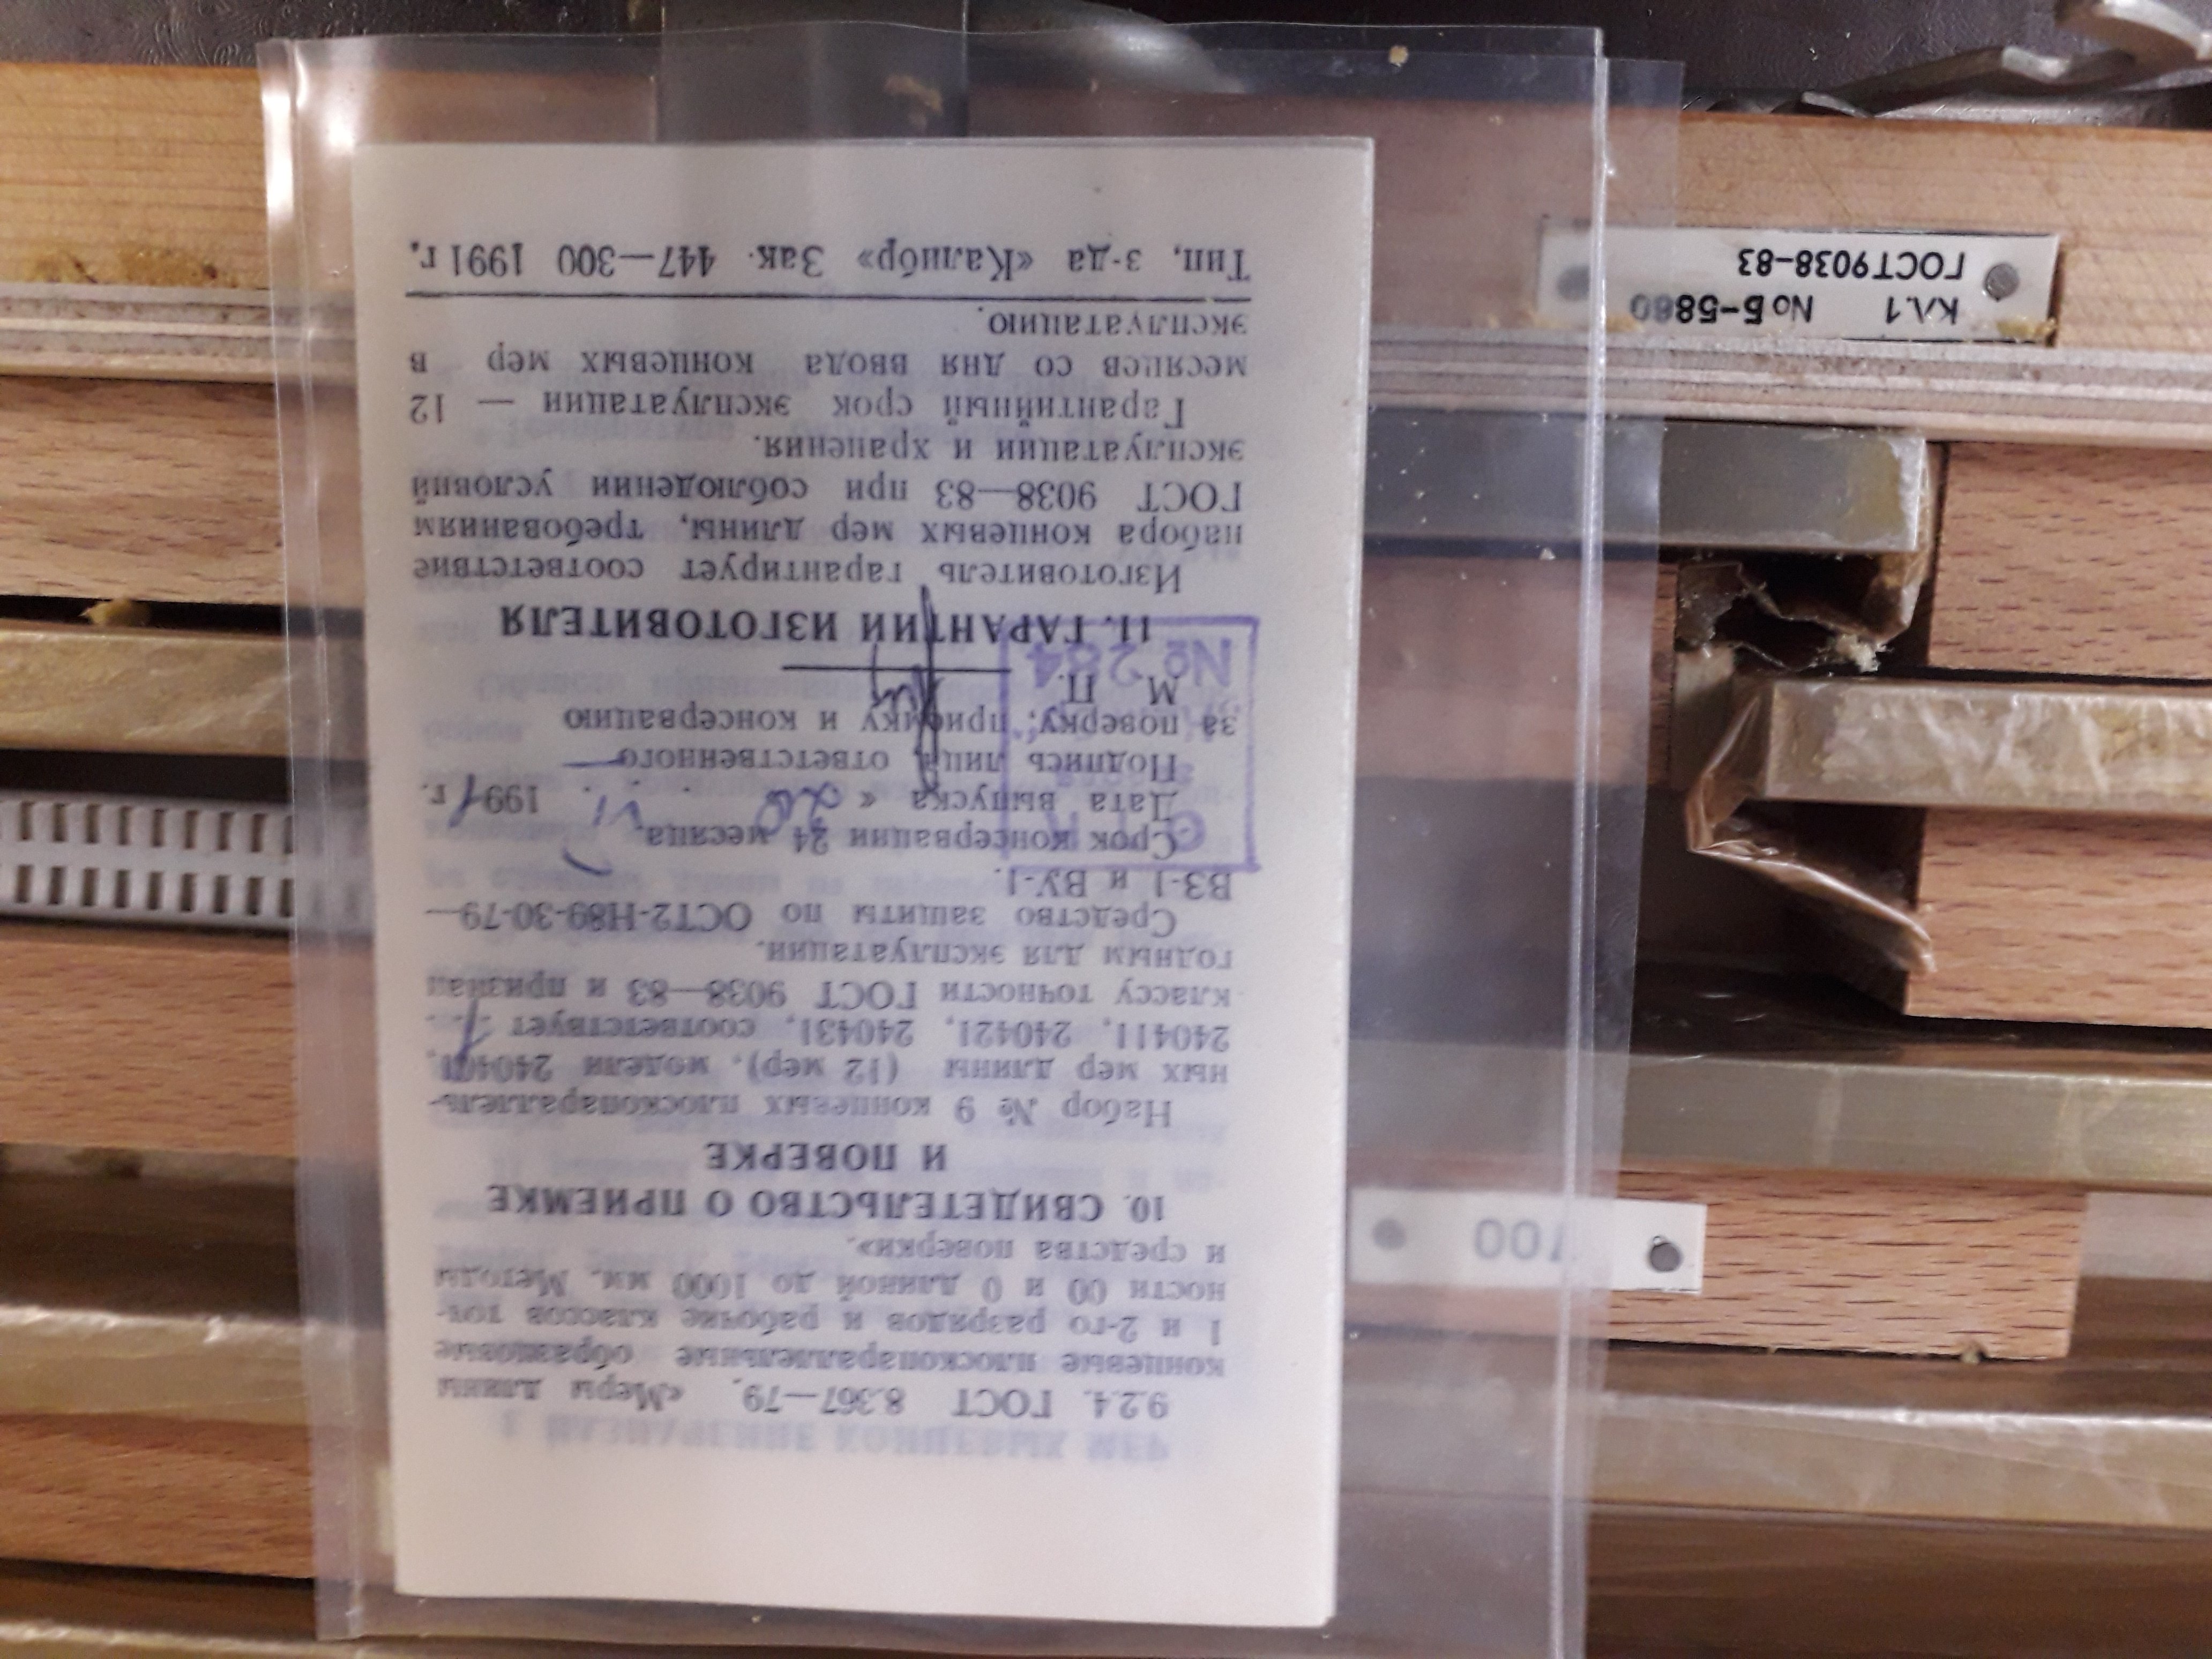 9.2.4. ГОСТ 8.367—79. «Меры длины
концевые плоскопараллельные образцовые
1 и 2-го разрядов и рабочие классов точ-
ности 00 и 0 длиной до 1000 мм. Методы
и средства поверки».
10. СВИДЕТЕЛЬСТВО О ПРИЕМКЕ
И ПОВЕРКЕ
Набор № 9 концевых плоскопараллель-
ных мер длины (12 мер). модели 240401,
240411, 240421, 240431, соответствует 1
классу точности ГОСТ 9038—83 и признан
годным для эксплуатации.
Средство защиты по ОСТ2-Н89-30-79—
ВЗ-1 и ВУ-1.
Срок консервации 24 месяца.
Дата выпуска « 20 VI 1991 г.
Подпись лица ответственного
за поверку, приемку и консервацию
М. П.
№ 284
11. ГАРАНТИИ ИЗГОТОВИТЕЛЯ
Изготовитель гарантирует соответствие
набора концевых мер длины, требованиям
ГОСТ 9038—83 при соблюдении условий
эксплуатации и хранения.
Гарантийный срок эксплуатации — 12
месяцев со дня ввода концевых мер в
эксплуатацию.
Тип. з-да «Калибр» Зак. 447—300 1991 г.
100
КЛ.1 №Б-5880
ГОСТ9038-83